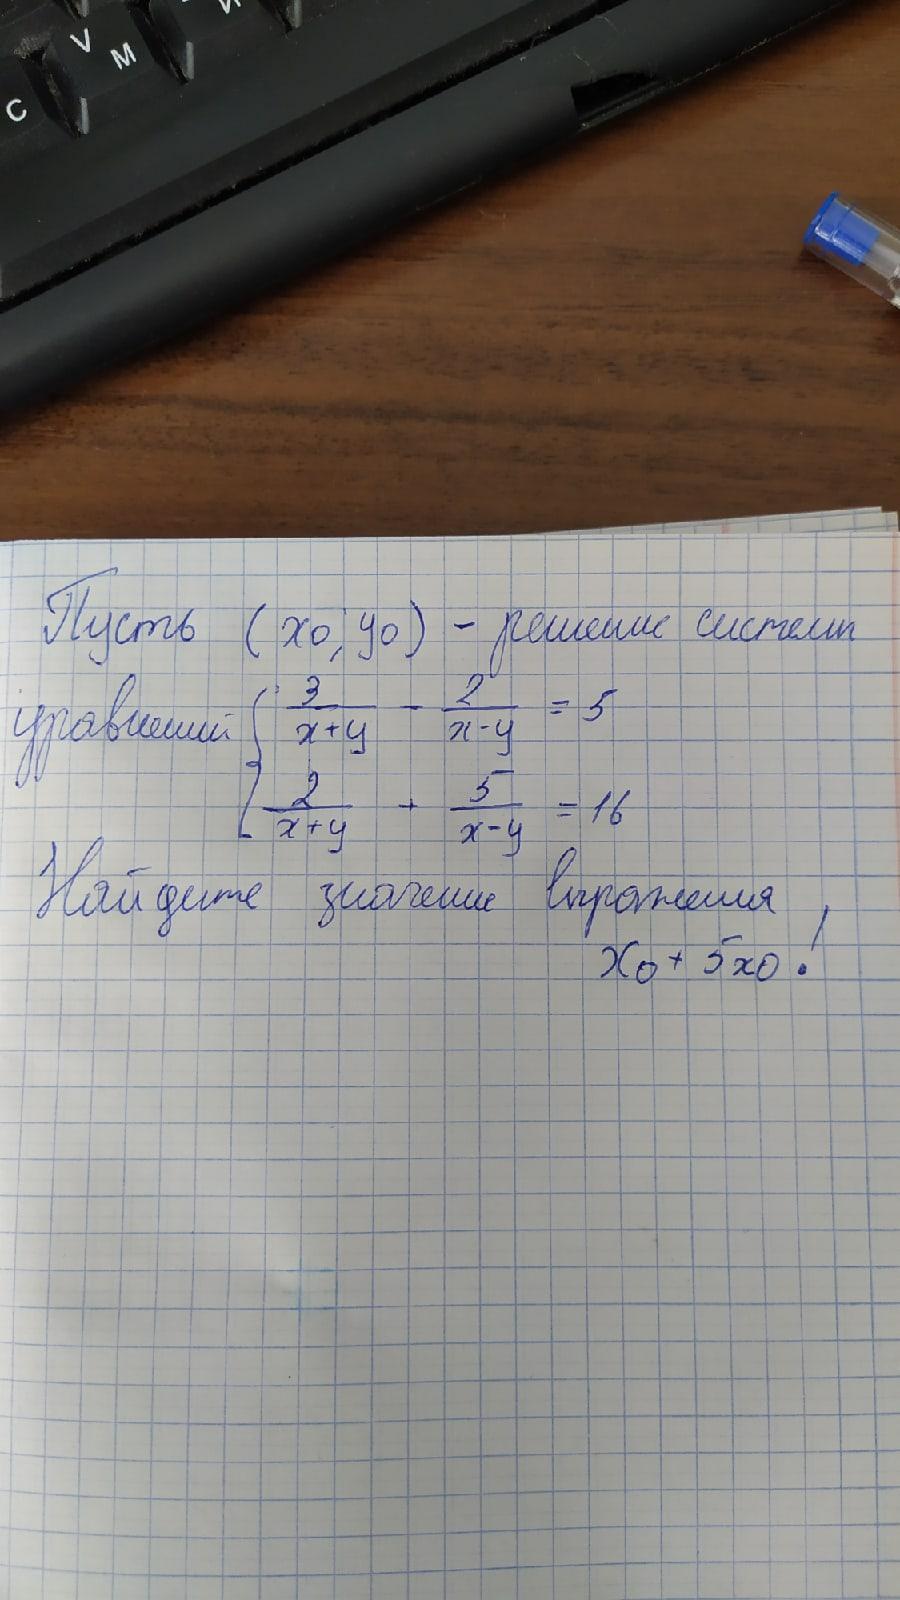 C V M И
Пусть (x0; y0) - решение системы
уравнений { 3/(x+y) - 2/(x-y) = 5
2/(x+y) + 5/(x-y) = 16
Найдите значение выражения
x0 + 5x0!